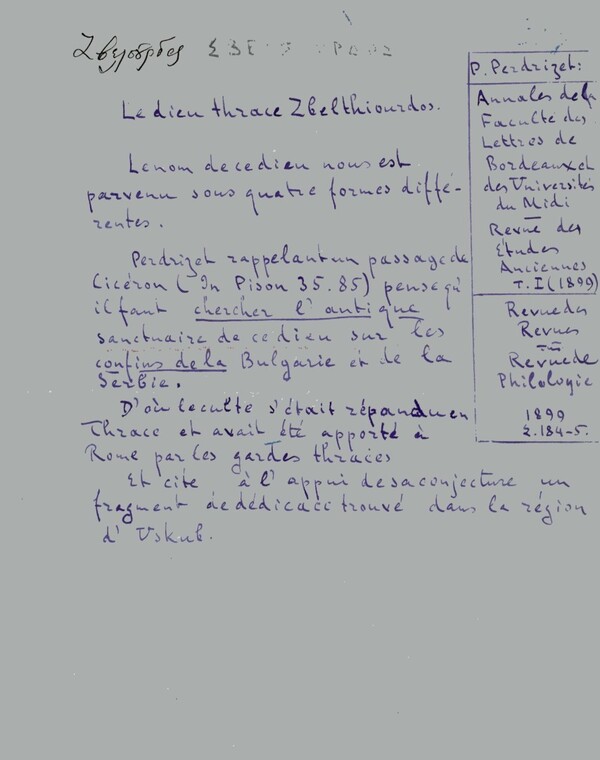 Σβελσύρδος ΣΒΕΛΣΥΡΔΟΣ
Le dieu thrace Zbelthiourdos.
Le nom de ce dieu nous est
parvenu sous quatre formes diffé-
rentes.
Perdrizet rappelant un passage de
Cicéron ("In Pison 35.85) pense qu'
il faut chercher l'antique
sanctuaire de ce dieu sur les
confins de la Bulgarie et de la
Serbie.
D'où le culte s'était répandu en
Thrace et avait été apporté à
Rome par les gardes thraces
Et cite à l'appui de sa conjecture un
fragment de dédicace trouvé dans la région
d'Uskub.
P. Perdrizet:
Annales de la
Faculté des
Lettres de
Bordeaux et
des Universités
du Midi
—
Revue des
Études
Anciennes
T. I (1899)
Revue des
Revues
Revue de
Philologie
1899
2.184-5.